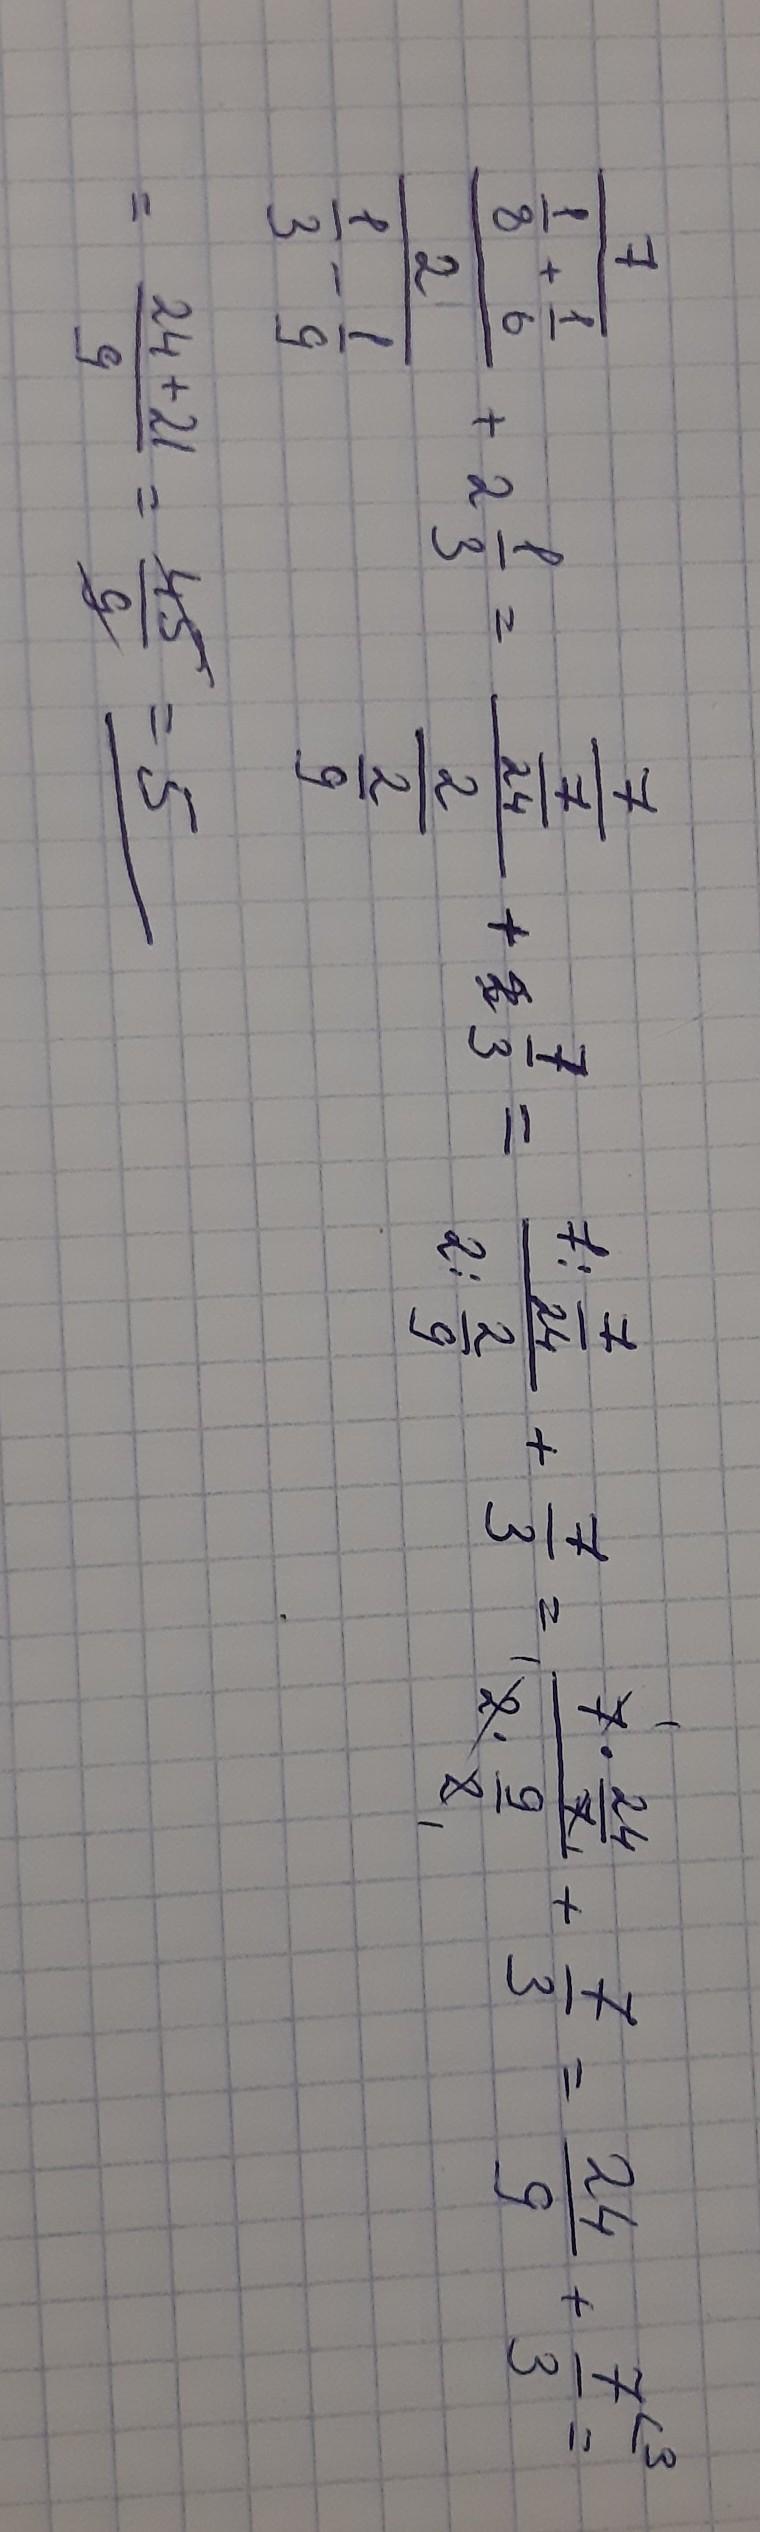 \frac{\frac{7}{\frac{1}{8}+\frac{1}{6}}}{\frac{2}{\frac{1}{3}-\frac{1}{9}}} + 2\frac{1}{3} = \frac{\frac{7}{\frac{7}{24}}}{\frac{2}{\frac{2}{9}}} + \frac{7}{3} = \frac{7:\frac{7}{24}}{2:\frac{2}{9}} + \frac{7}{3} = \frac{7\cdot\frac{24}{7}}{2\cdot\frac{9}{2}} + \frac{7}{3} = \frac{24}{9} + \frac{7}{3}^{(3} =
= \frac{24+21}{9} = \frac{45}{9} = 5